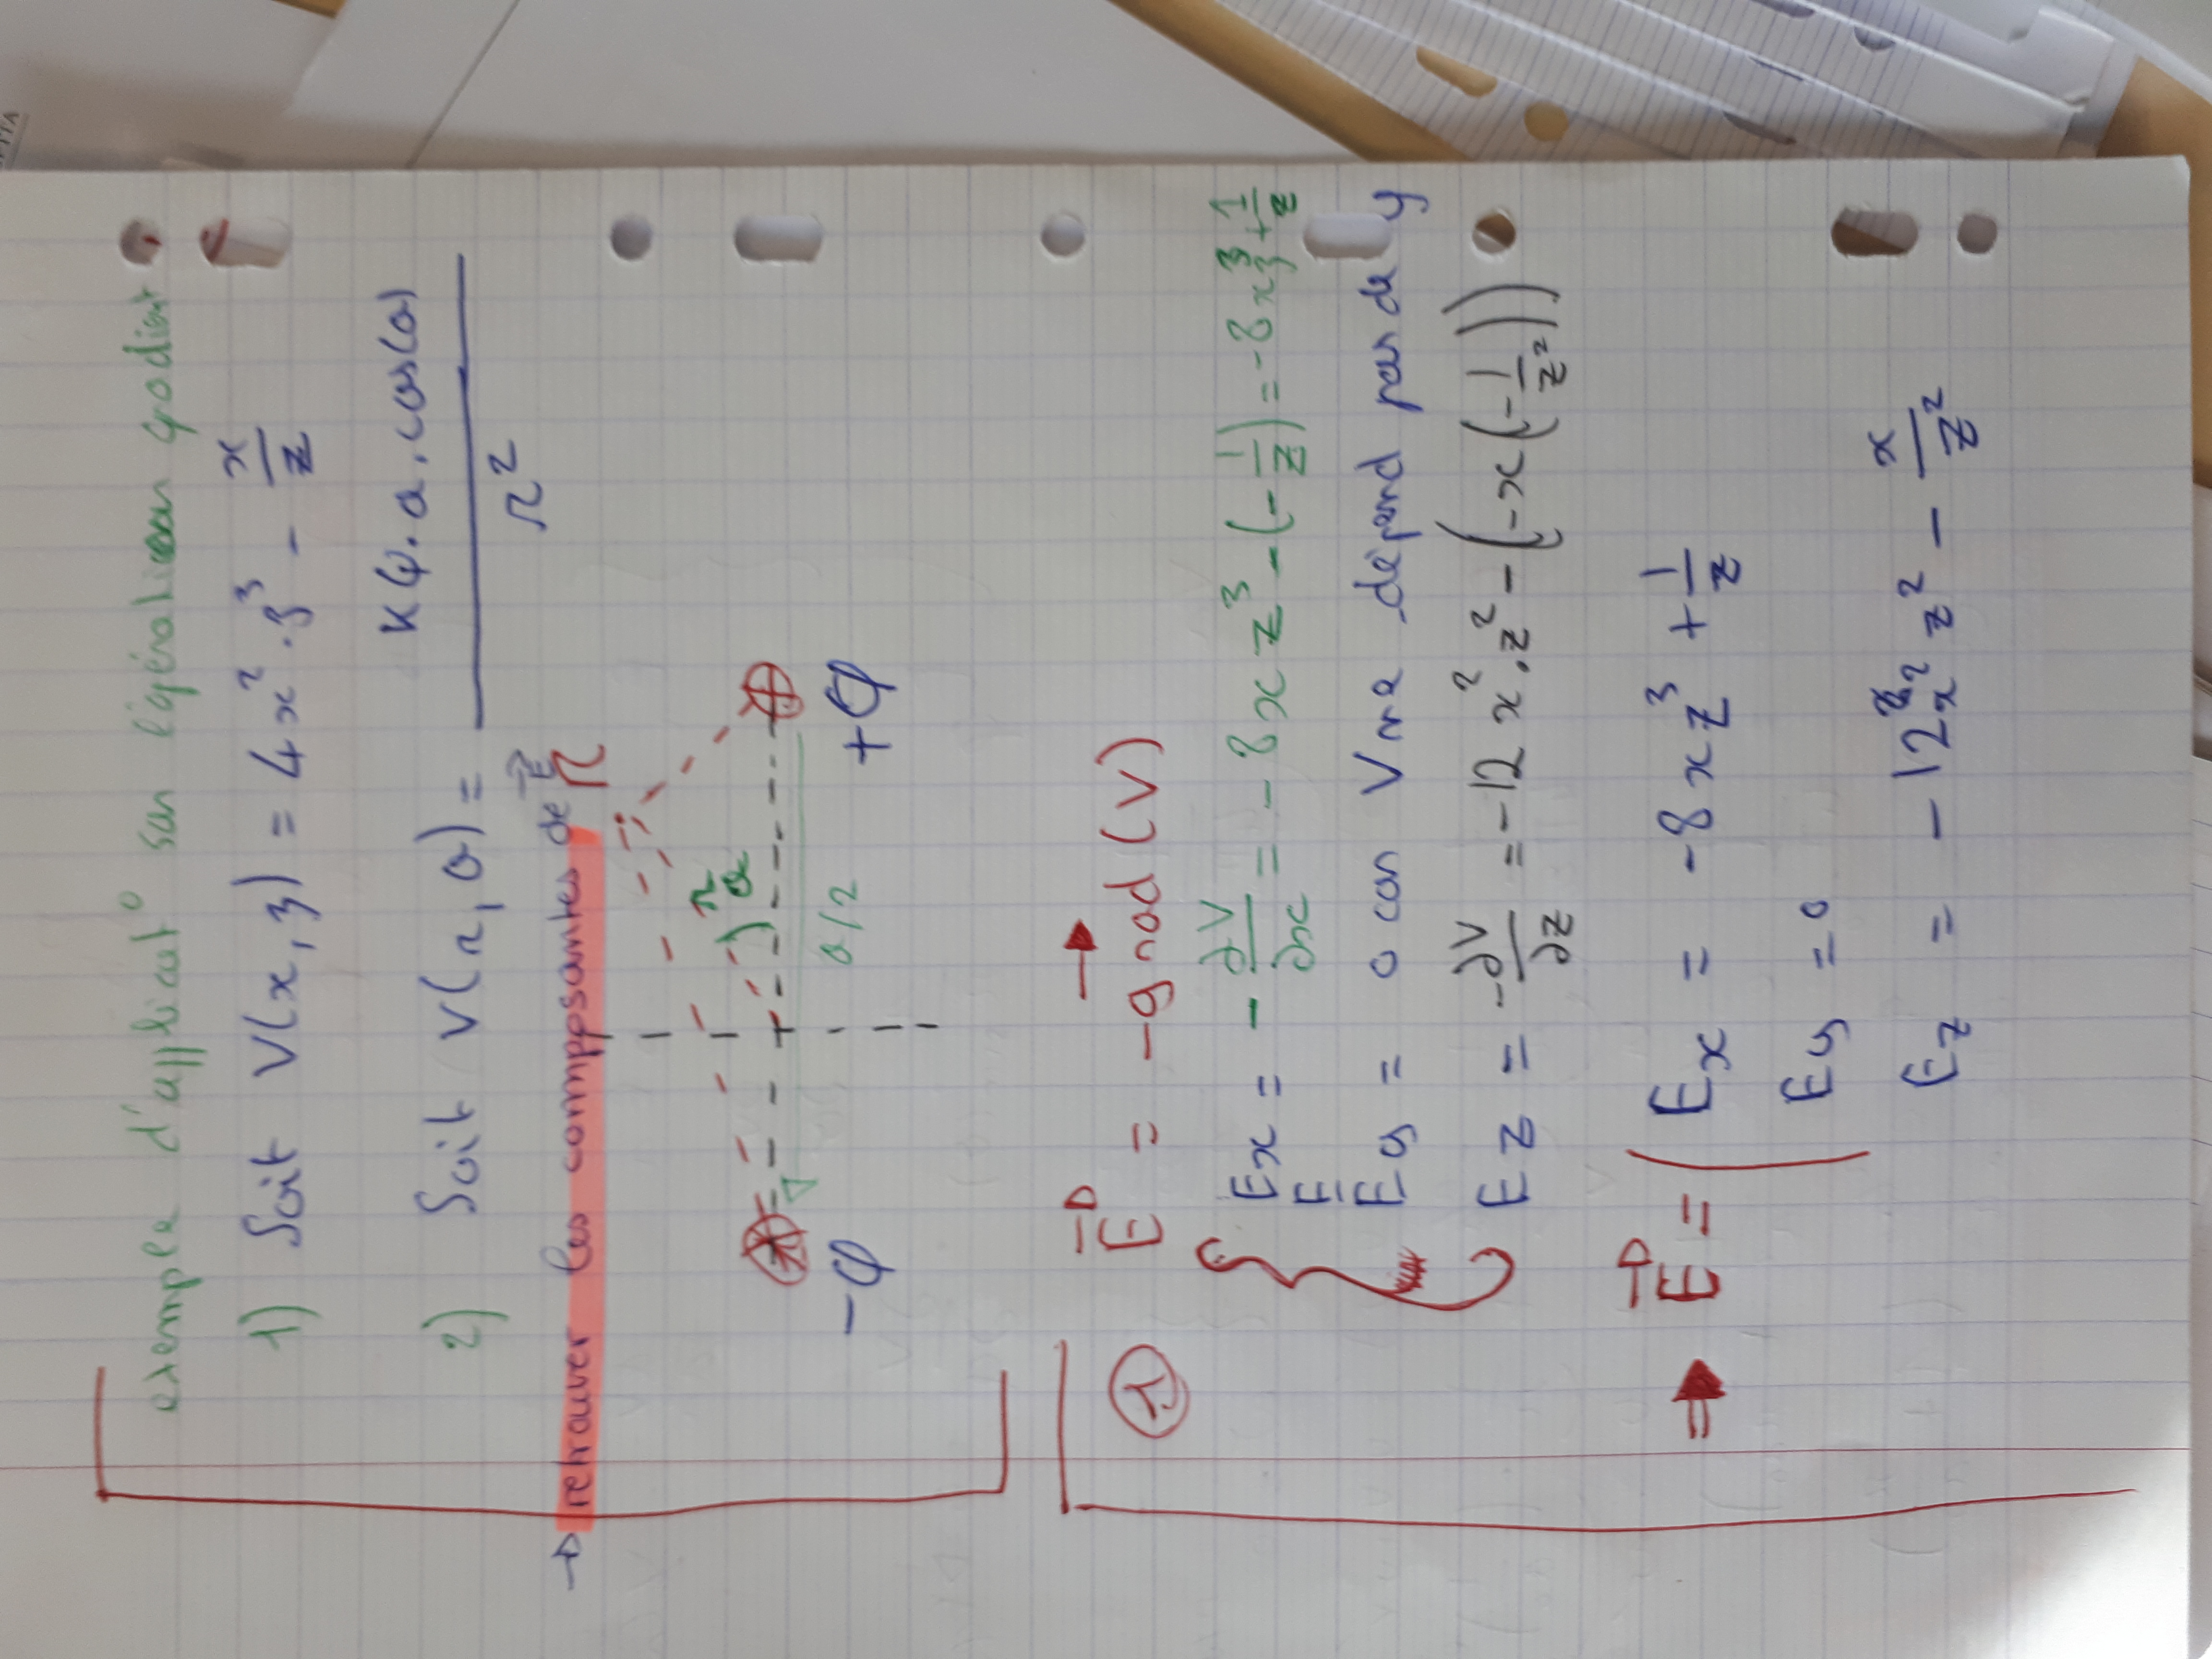 exemple d'applicat° sur l'égéralisan gradient
1) Soit V(x,z) = 4x² . z³ - x/z
2) Soit V(r,θ) = KQ.a.cos(θ) / r²
→ retrouver les composantes de E⃗
r
θ
a/2
-Q +Q
① E⃗ = -grad(V)
Ex = -∂V/∂x = -8xz³ - (-1/z) = -8xz³ + 1/z
E
Ey = 0 car V ne dépend pas de y
Ez = -∂V/∂z = -12x².z² - (-x(-1/z²))
⇒ E⃗ = ( Ex = -8xz³ + 1/z
Ey = 0
Ez = -12x²z² - x/z²